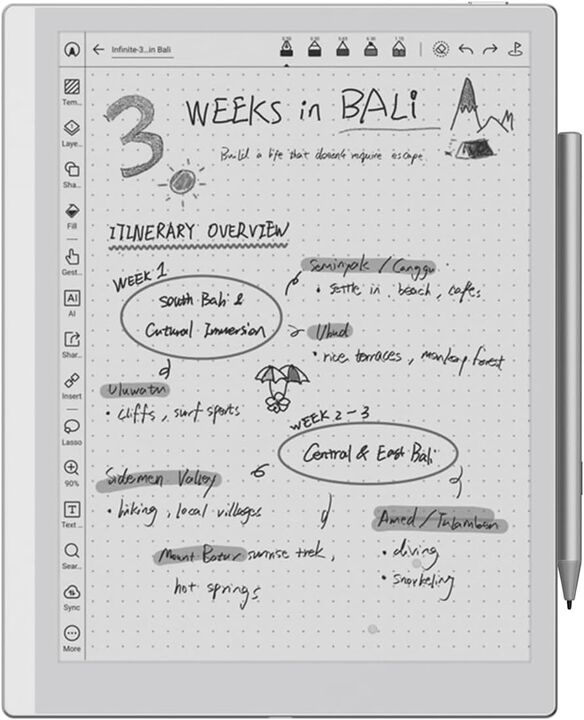 Infinite-3...in Bali
Tem...
Laye...
Sha...
Fill
Gest...
AI
AI
Shar...
Insert
Lasso
90%
Text ...
Sear...
Sync
More
3 WEEKS in BALI
Build a life that doesn't require escape
ITINERARY OVERVIEW
WEEK 1
South Bali &
Cutural Immersion
Seminyak / Canggu
• settle in, beach, cafes
Ubud
• rice terraces, monkey forest
Uluwatu
• cliffs, surf spots
WEEK 2-3
Central & East Bali
Sidemen Valley
• hiking, local villages
Mount Batur sunrise trek,
hot springs
Amed / Tulamben
• diving
• snorkeling